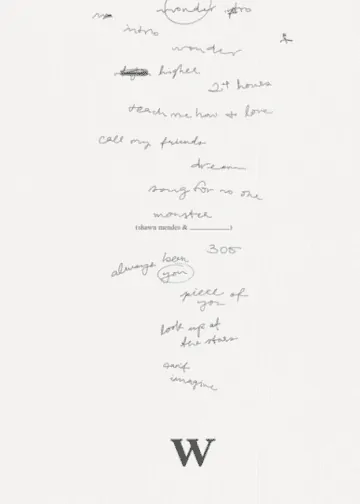 wonder intro
intro
wonder
higher
24 hours
teach me how to love
call my friends
dream
song for no one
monster
(shawn mendes & ________)
305
always been
you
piece of
you
look up at
the stars
can't
imagine
W